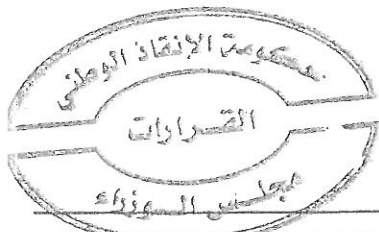 حكومة الإنقاذ الوطني
القرارات
مجلس الوزراء